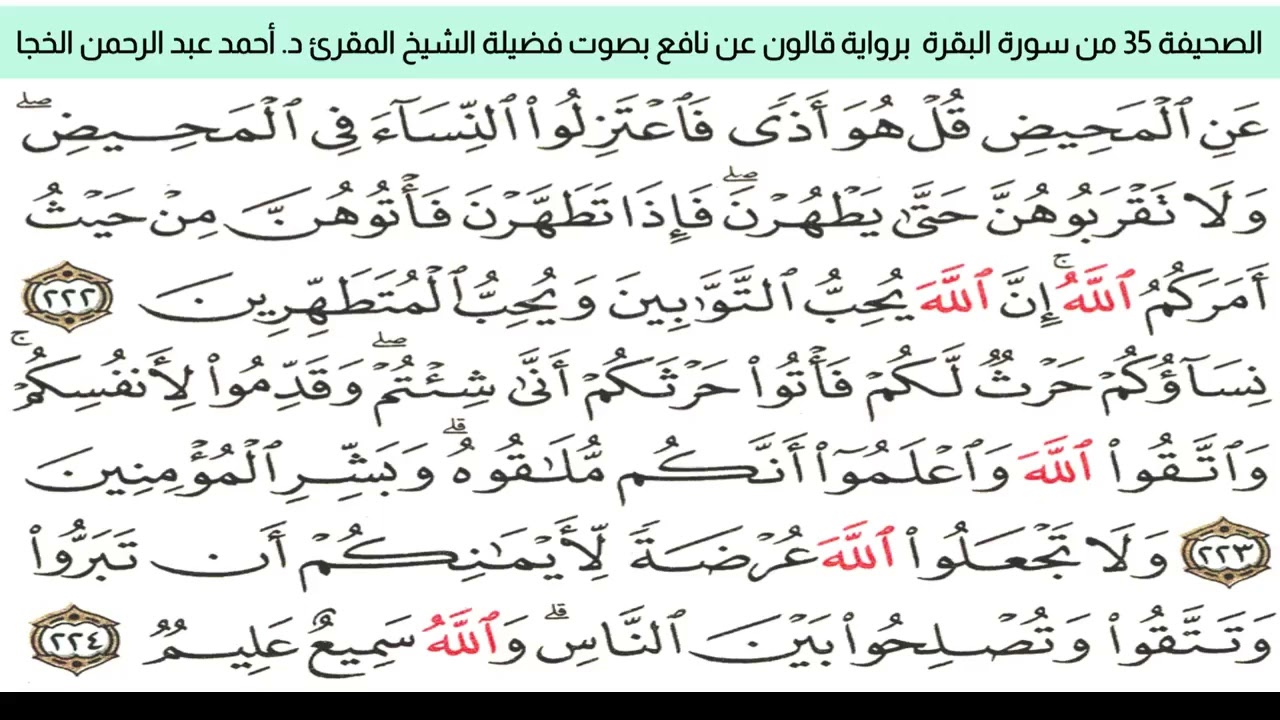 الصحيفة 35 من سورة البقرة برواية قالون عن نافع بصوت فضيلة الشيخ المقرئ د. أحمد عبد الرحمن الخجا
عَنِ ٱلْمَحِيضِ قُلْ هُوَ أَذًى فَٱعْتَزِلُواْ ٱلنِّسَآءَ فِى ٱلْمَحِيضِۖ
وَلَا تَقْرَبُوهُنَّ حَتَّىٰ يَطْهُرْنَۖ فَإِذَا تَطَهَّرْنَ فَأْتُوهُنَّ مِنْ حَيْثُ
أَمَرَكُمُ ٱللَّهُۚ إِنَّ ٱللَّهَ يُحِبُّ ٱلتَّوَّٰبِينَ وَيُحِبُّ ٱلْمُتَطَهِّرِينَ ٢٢٢
نِسَآؤُكُمْ حَرْثٌ لَّكُمْ فَأْتُواْ حَرْثَكُمْ أَنَّىٰ شِئْتُمْۖ وَقَدِّمُواْ لِأَنفُسِكُمْۚ
وَٱتَّقُواْ ٱللَّهَ وَٱعْلَمُوٓاْ أَنَّكُم مُّلَٰقُوهُۗ وَبَشِّرِ ٱلْمُؤْمِنِينَ
٢٢٣ وَلَا تَجْعَلُواْ ٱللَّهَ عُرْضَةً لِّأَيْمَٰنِكُمْ أَن تَبَرُّواْ
وَتَتَّقُواْ وَتُصْلِحُواْ بَيْنَ ٱلنَّاسِۗ وَٱللَّهُ سَمِيعٌ عَلِيمٌ ٢٢٤